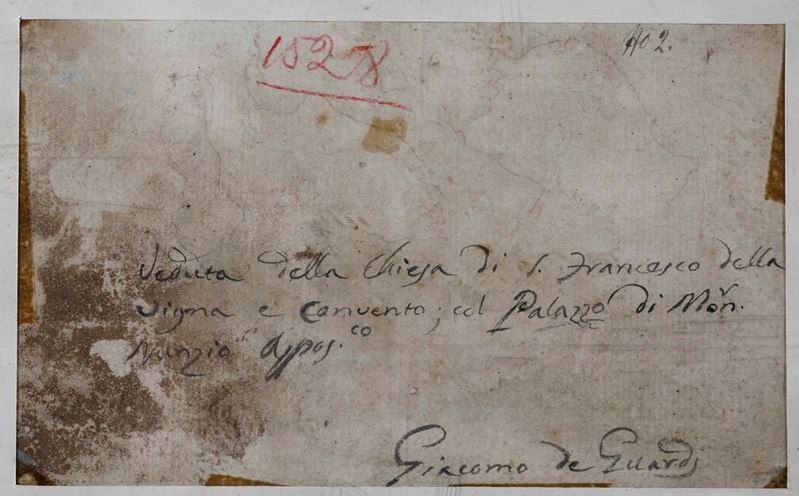 1528
No 2.
Veduta della Chiesa di S. Francesco della
Vigna e Convento; col Palazzo di Mōn.
Nunzio Appos.co
Giacomo de Guardi